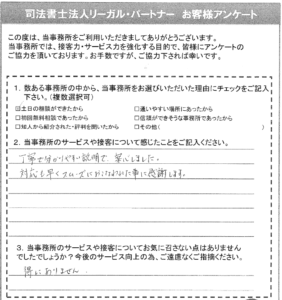 司法書士法人リーガル・パートナー お客様アンケート
この度は、当事務所をご利用いただきましてありがとうございます。
当事務所では、接客力・サービス力を強化する目的で、皆様にアンケートの
ご協力を頂いております。お手数ですが、ご協力下されば幸いです。
1. 数ある事務所の中から、当事務所をお選びいただいた理由にチェックをご記入
下さい。(複数選択可)
☑土日の相談ができたから □通いやすい場所にあったから
□初回無料相談であったから □信頼ができそうな事務所であったから
□知人から紹介された・評判を聞いたから □その他( )
2. 当事務所のサービスや接客について感じたことをご記入ください。
丁寧で分かりやすい説明で、安心しました。
対応も早くスムーズにおこなわれた事に感謝します。
3. 当事務所のサービスや接客についてお気に召さない点はありません
でしたでしょうか？今後のサービス向上の為、ご遠慮なくご指摘ください。
特にありません